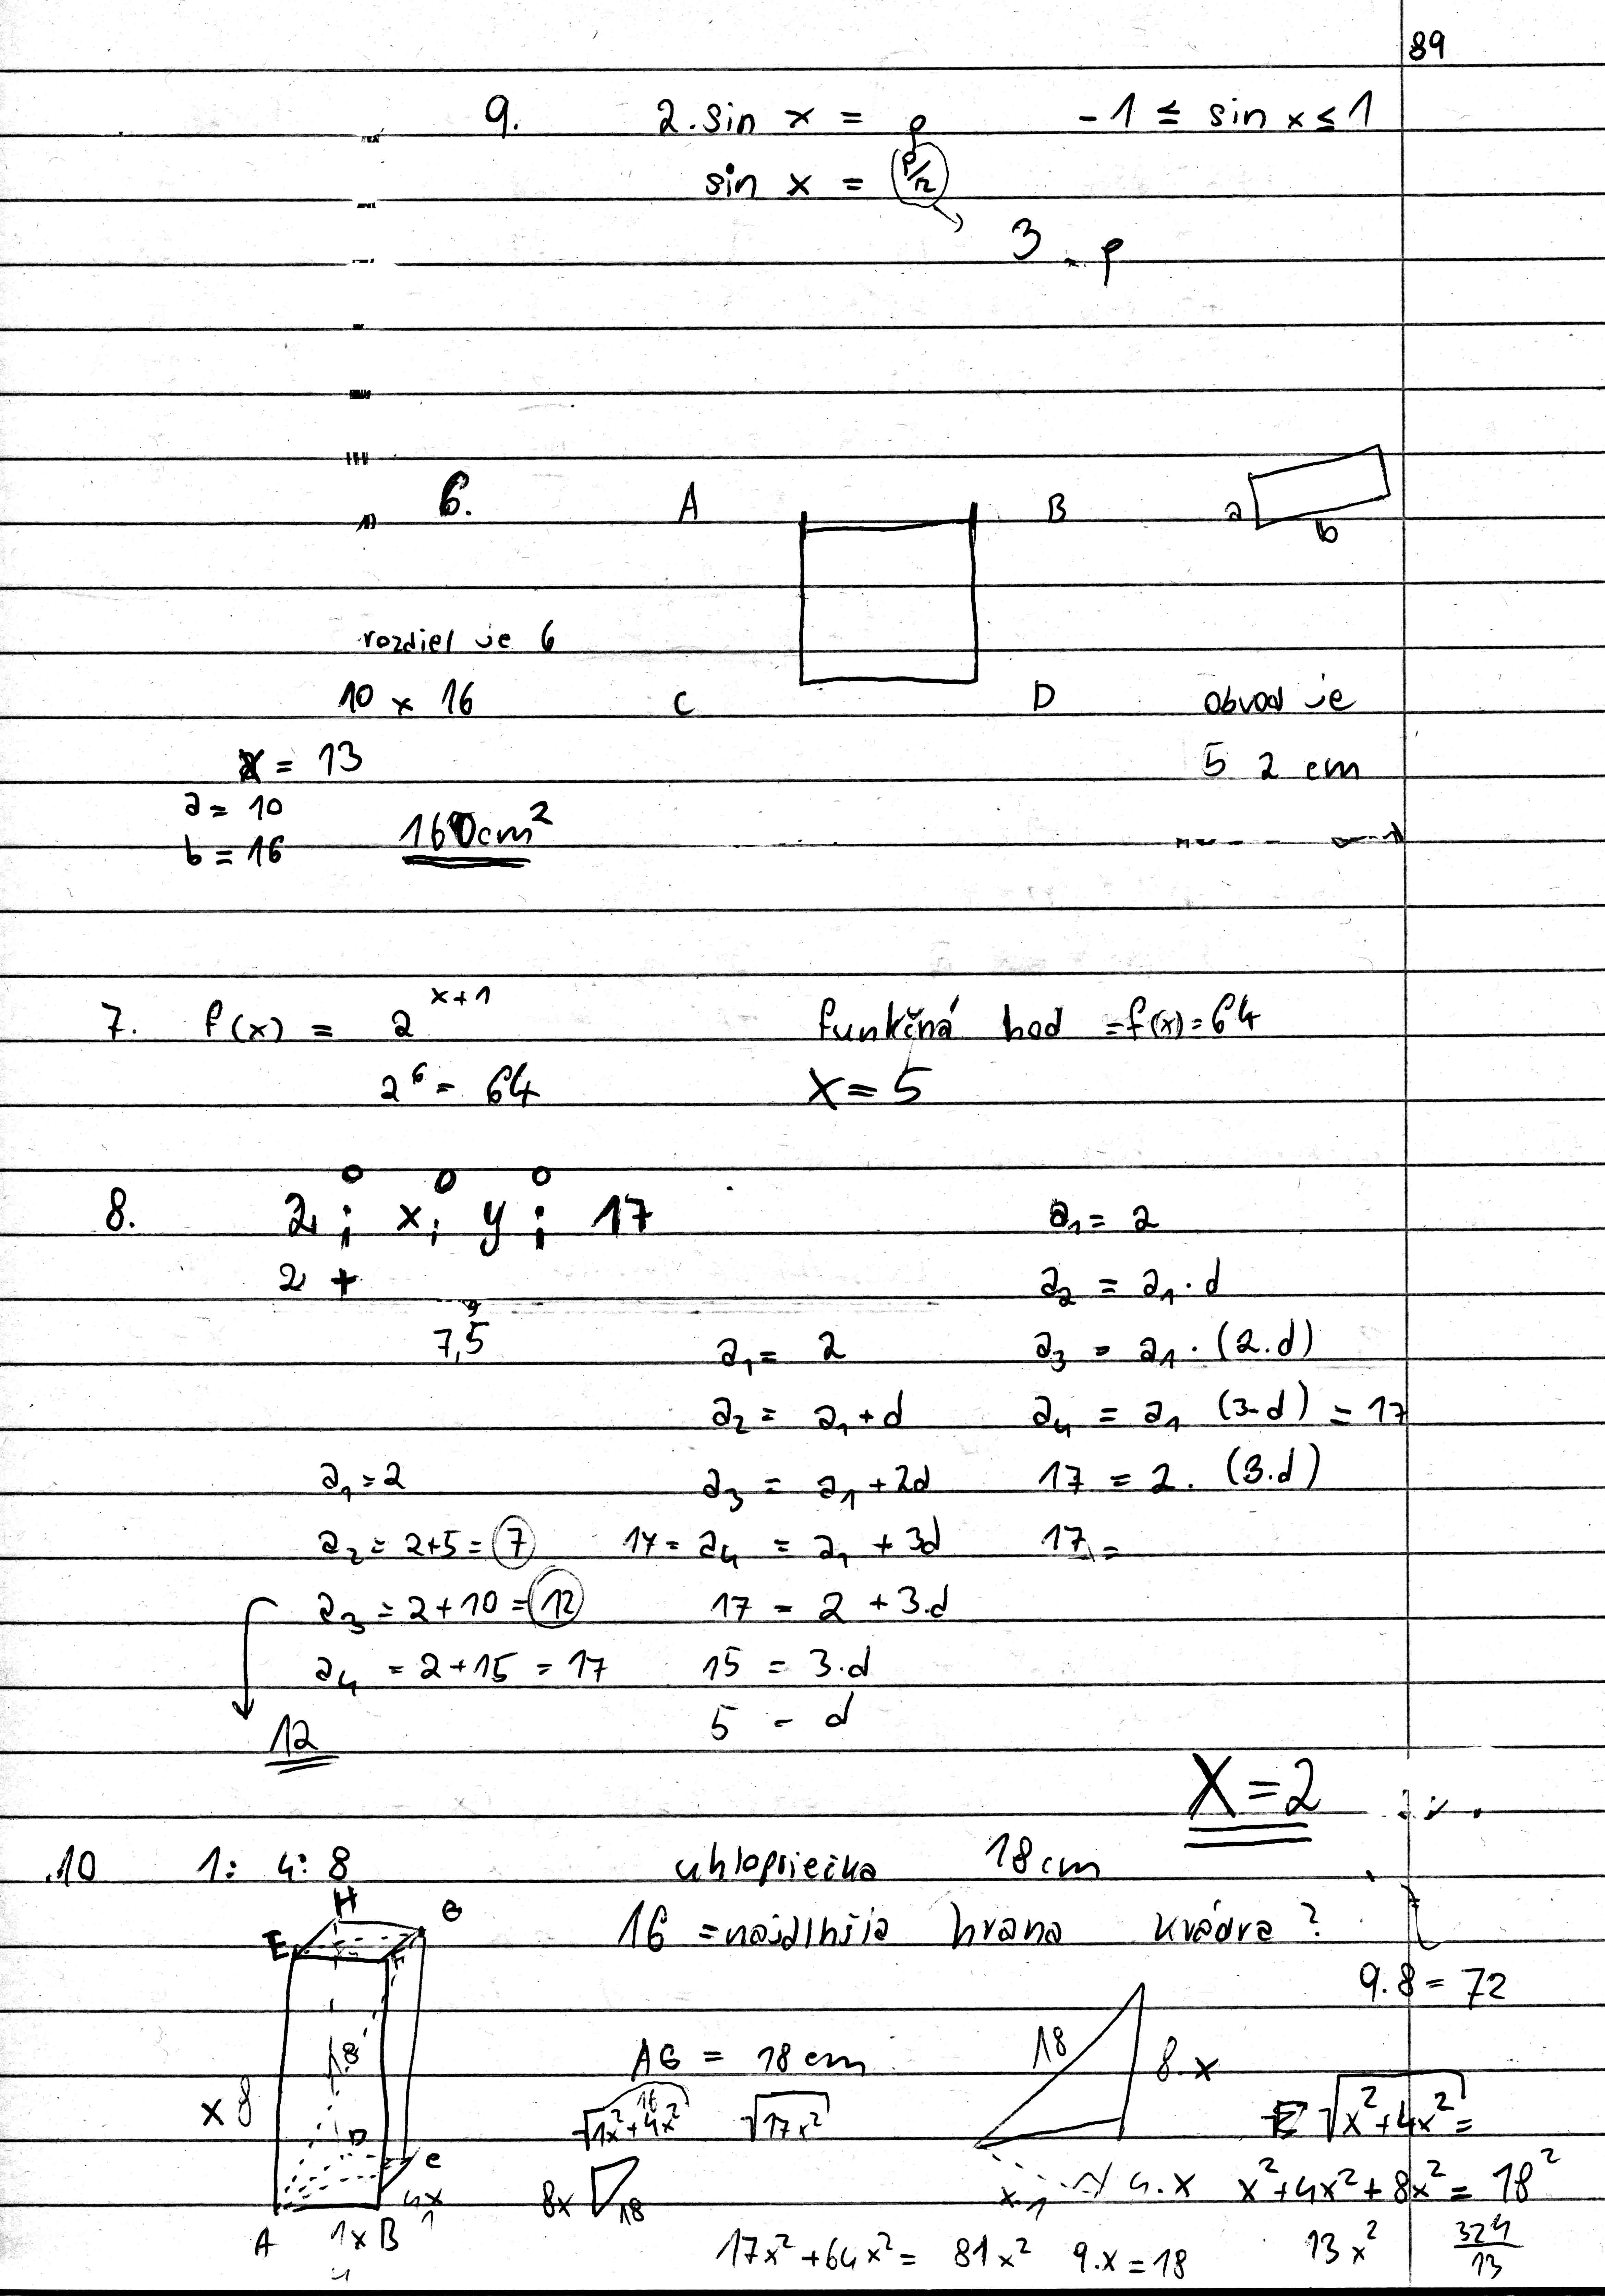 89
9. 2.sin x = p -1 ≤ sin x ≤ 1
sin x = p/2
3 - p
6. A B a b
rozdiel je 6
10 x 16 C D obvod je
x = 13 52 cm
a = 10
b = 16 160cm²
7. f(x) = 2^(x+1) funkčná hod = f(x) = 64
2^6 = 64 x = 5
8. 2 ; x ; y ; 17 a₁ = 2
2 + a₂ = a₁ . d
7,5 a₁ = 2 a₃ = a₁ . (2.d)
a₂ = a₁ + d a₄ = a₁ (3.d) = 17
a₁ = 2 a₃ = a₁ + 2d 17 = 2 . (3.d)
a₂ = 2+5 = 7 17 = a₄ = a₁ + 3d 17 =
a₃ = 2+10 = 12 17 = 2 + 3.d
a₄ = 2+15 = 17 15 = 3.d
12 5 = d
X = 2
10 1 : 4 : 8 uhlopriečka 18 cm
H G 16 = najdlhšia hrana kvádra ?
E F 9.8 = 72
18 AG = 18 cm 18 8.x
x 8 √1x²+4x² 16 √17x² √x²+4x² =
D C 8x 18 x.1 4.x x²+4x²+8x² = 18²
A 1x B 4x 17x²+64x² = 81x² 9.x = 18 13x² 324/13